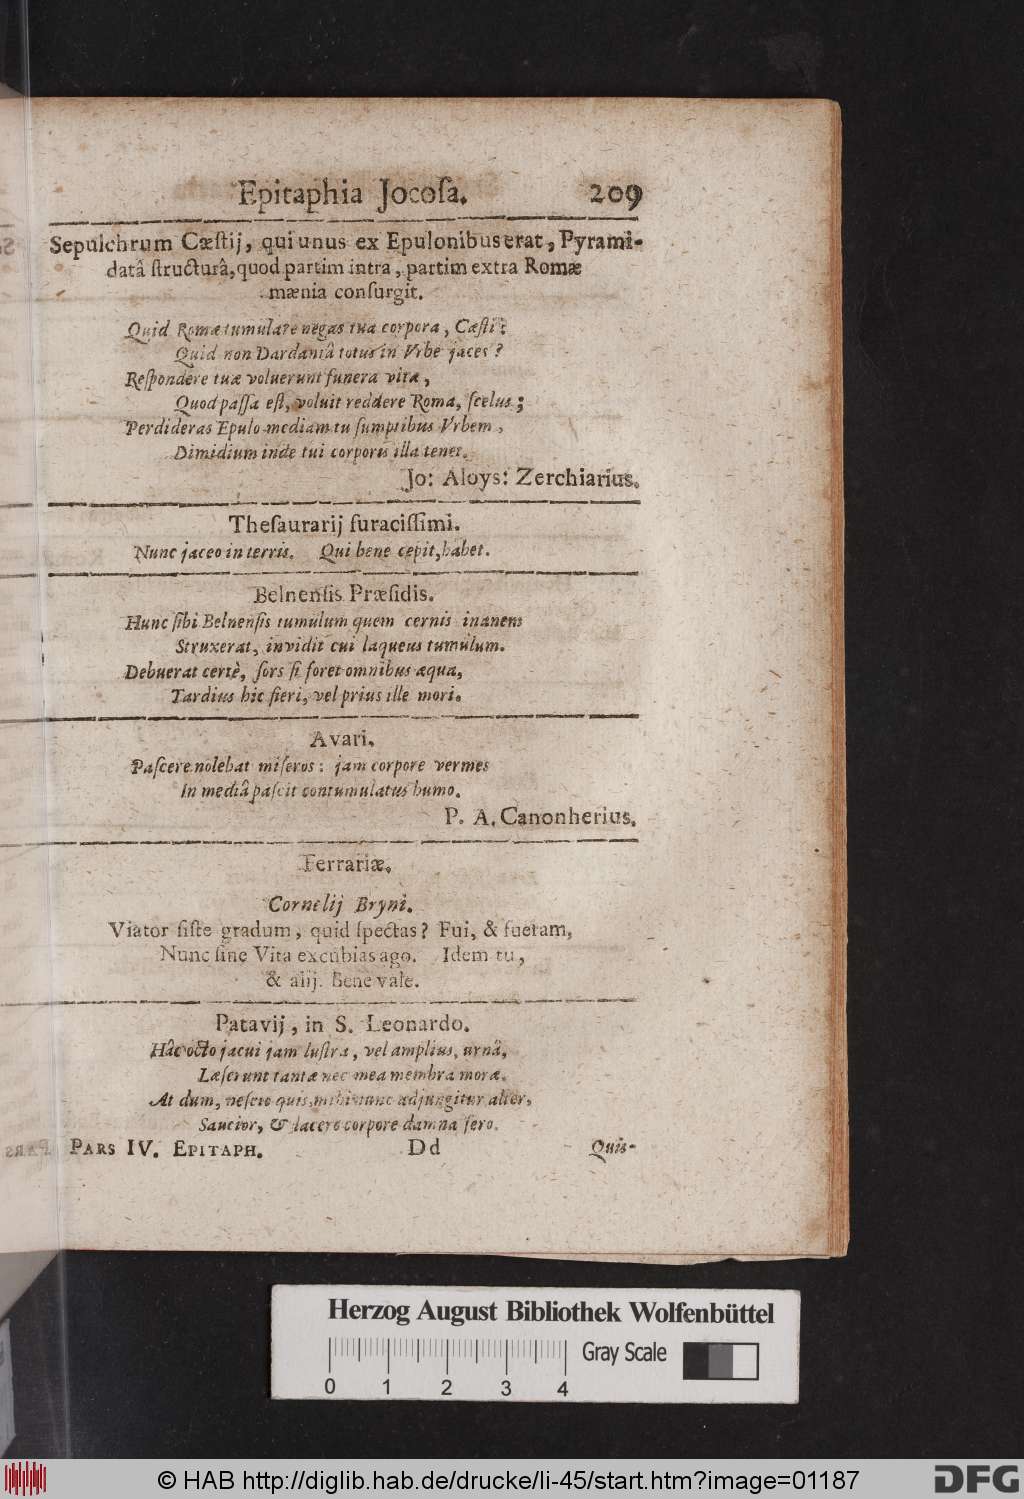 Epitaphia Jocoſa. 209
Sepulchrum Cæſtij, qui unus ex Epulonibus erat, Pyrami-
datâ ſtructurâ, quod partim intra, partim extra Romæ
mænia conſurgit.
Quid Romæ tumulare negas tua corpora, Cæſti?
Quid non Dardaniâ totus in Vrbe jaces?
Reſpondere tuæ voluerunt funera vitæ,
Quod paſſa eſt, voluit reddere Roma, ſcelus;
Perdideras Epulo mediam tu ſumptibus Vrbem,
Dimidium inde tui corporis illa tenet.
Jo: Aloys: Zerchiarius.
Theſaurarij furaciſſimi.
Nunc jaceo in terris. Qui bene cepit, habet.
Belnenſis Præſidis.
Hunc ſibi Belnenſis tumulum quem cernis inanem
Struxerat, invidit cui laqueus tumulum.
Debuerat certè, ſors ſi foret omnibus æqua,
Tardius hic fieri, vel prius ille mori.
Avari.
Paſcere nolebat miſeros: jam corpore vermes
In mediâ paſcit contumulatus humo.
P. A. Canonherius.
Terrariæ.
Cornelij Bryni.
Viator ſiſte gradum, quid ſpectas? Fui, & fueram,
Nunc ſine Vita excubias ago. Idem tu,
& alij. Bene vale.
Patavij, in S. Leonardo.
Hâc octo jacui jam luſtra, vel amplius, urnâ,
Læſerunt tantæ nec mea membra moræ.
At dum, neſcio quis, mihi nunc adjungitur alter,
Saucior, & lacero corpore damna fero.
PARS IV. EPITAPH. Dd Quis-
Herzog August Bibliothek Wolfenbüttel
0 1 2 3 4 Gray Scale
© HAB http://diglib.hab.de/drucke/li-45/start.htm?image=01187 DFG